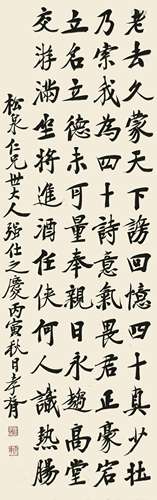 老去久蒙天下謗回憶四十真少壯
乃索我為四十詩意氣畏君正豪宕
立名立德未可量奉親日永趨高堂
交游滿坐將進酒任俠何人識熱腸
松泉仁兄世大人強仕之慶丙寅秋日孝胥